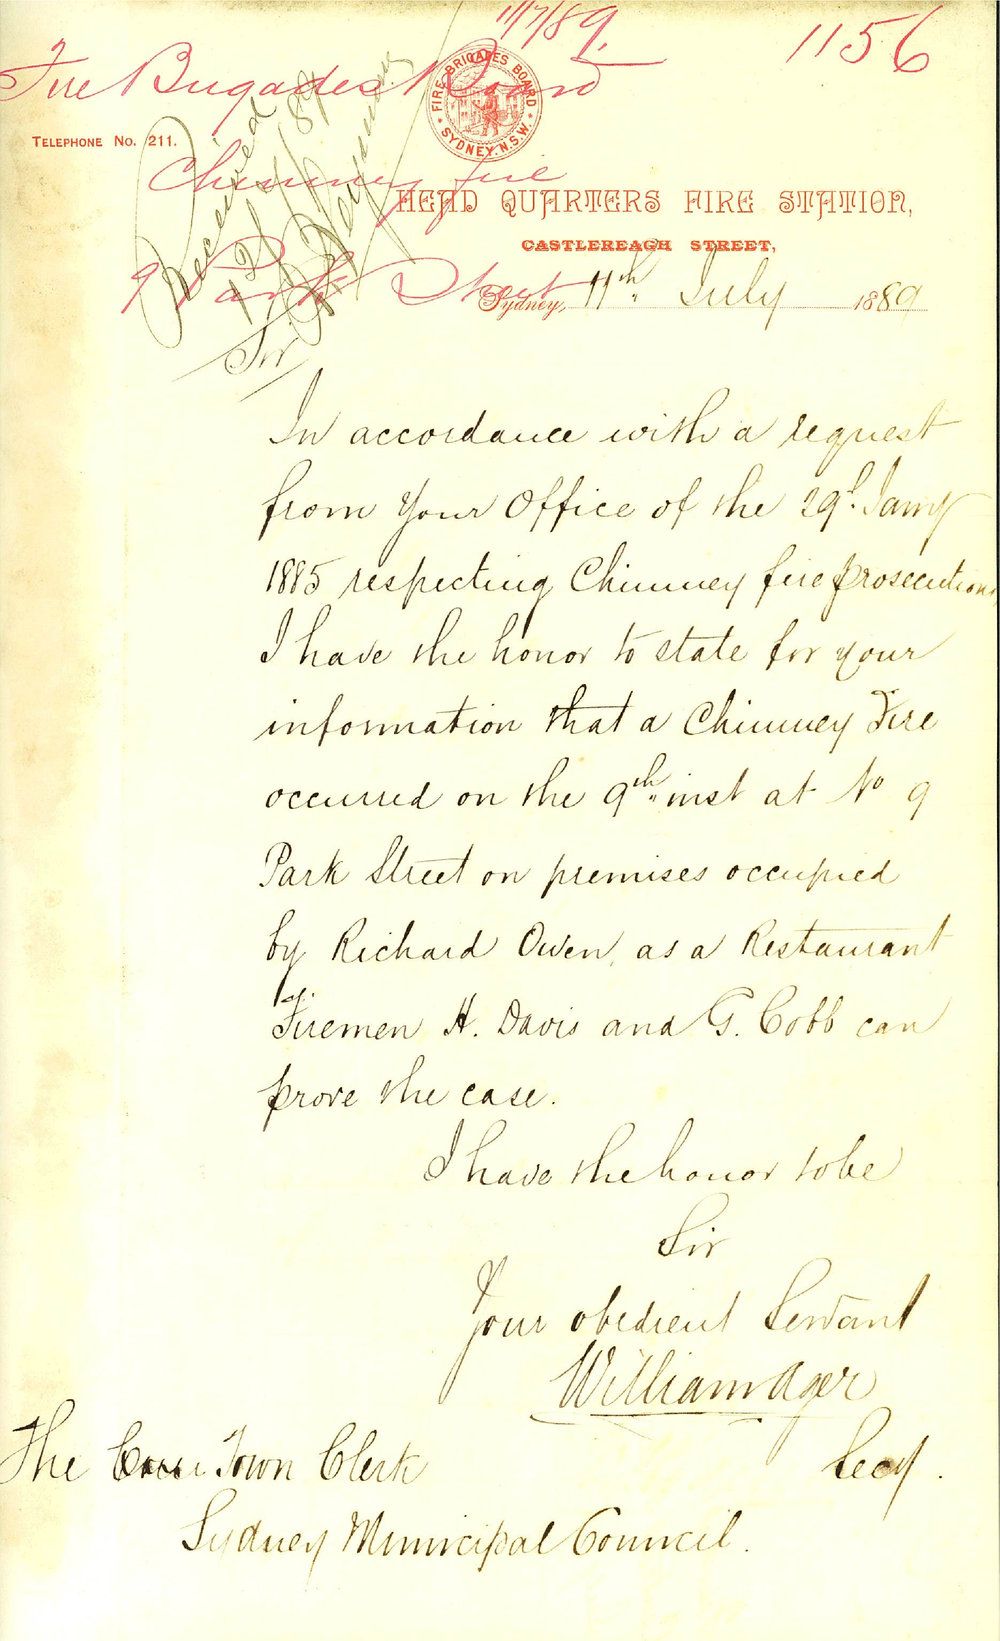 11/7/89.
1156
Fire Brigades Board
FIRE BRIGADES BOARD
SYDNEY. N.S.W.
TELEPHONE No. 211.
Chimney fire
HEAD QUARTERS FIRE STATION,
CASTLEREAGH STREET,
9 Park Street
Received
Sydney, 11th July 1889
Sir
In accordance with a request
from your Office of the 29th Jany
1885 respecting Chimney fire prosecutions
I have the honor to state for your
information that a Chimney Fire
occurred on the 9th inst at No 9
Park Street on premises occupied
by Richard Owen, as a Restaurant
Firemen H. Davis and G. Cobb can
prove the case.
I have the honor to be
Sir
Your obedient Servant
William Ager
Secy.
The Town Clerk
Sydney Municipal Council.